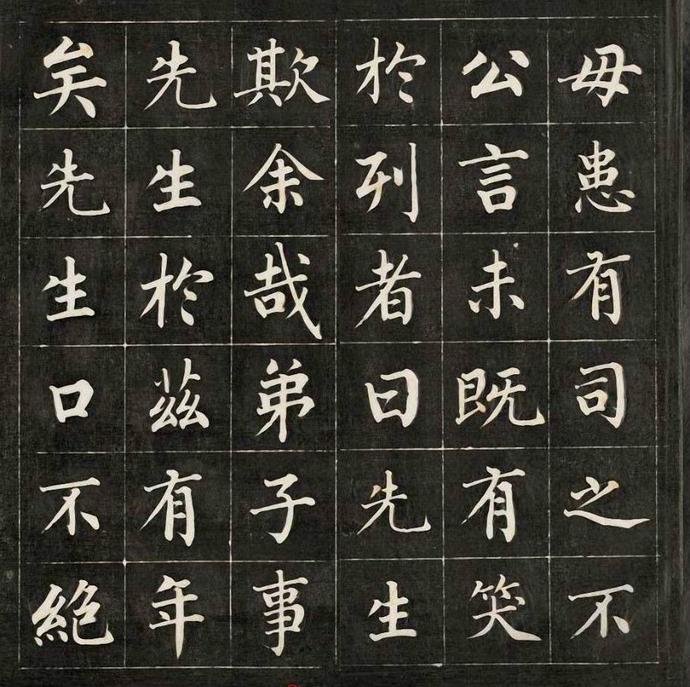 毋患有司之不
公言未既有笑
於列者曰先生
欺余哉弟子事
先生於茲有年
矣先生口不絕